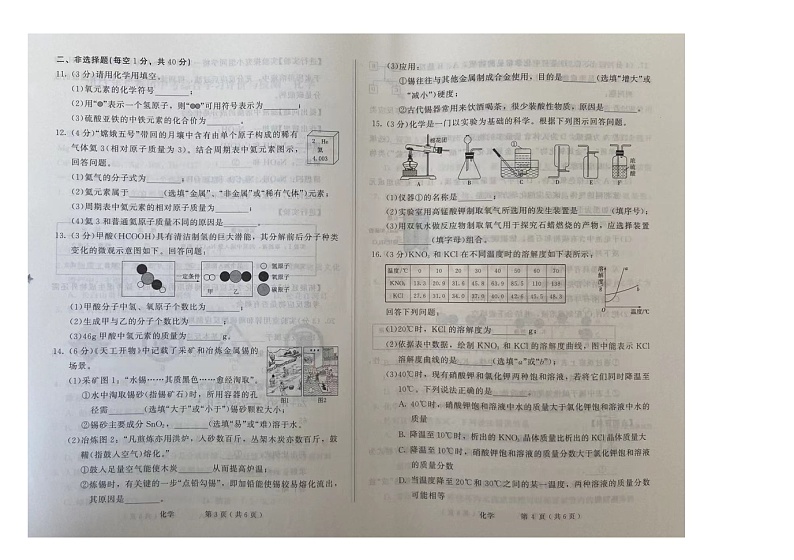 二、非选择题(每空1分，共40分)
11.(3分)请用化学用填空。
(1)氧元素的化学符号______；
(2)用“●”表示一个氢原子，则“●●”可用符号表示为______；
(3)硫酸亚铁的中铁元素的化合价为______。
12.(4分)“嫦娥五号”带回的月壤中含有由单个原子构成的稀有
气体氦3(相对原子质量为3)。结合周期表中氦元素图示，
回答问题。
2 He
氦
4.003
(1)氦气的分子式为______；
(2)氦元素属于______(选填“金属”、“非金属”或“稀有气体”)元素；
(3)周期表中氦元素的相对原子质量为______；
(4)氦3和普通氦原子质量不同的原因是______。
13.(3分)甲酸(HCOOH)具有清洁制氢的巨大潜能，其分解前后分子种类
变化的微观示意图如下。回答问题：
一定条件
甲 乙
氢原子
氧原子
碳原子
(1)甲酸分子中氢、氧原子个数比为______；
(2)生成甲与乙的分子个数比为______；
(3)46g甲酸中氢元素的质量为______g。
14.(6分)《天工开物》中记载了采矿和冶炼金属锡的
场景。
(1)采矿图1，“水锡……其质黑色……愈经淘取”。
①水中淘取锡砂(指锡矿石)时，所用容器的孔
径需______(选填“大于”或“小于”)锡砂颗粒大小；
②锡砂主要成分SnO₂，______(选填“易”或“难)溶于水。
图1 图2
(2)冶炼图2：“凡煎炼亦用洪炉，入砂数百斤，丛架木炭亦数百斤，鼓
鞴(指鼓入空气)熔化。”
①鼓入足量空气能使木炭______从而提高炉温；
②炼锡时，有关键的一步“点铅勾锡”，即加铅能使锡较易熔化流出，
其原因是______。
化学 第3页(共6页)
(3)应用：
①锡往往与其他金属制成合金使用，目的是______(选填“增大”或
“减小”)硬度；
②古代锡器常用来饮酒喝茶，很少装酸性物质，原因是______。
15.(3分)化学是一门以实验为基础的科学。根据下列图示回答问题。
棉花团
①
浓
硫
酸
A B C D E F
(1)仪器①的名称是______；
(2)实验室用高锰酸钾制取氧气所选用的发生装置是______(填序号)；
(3)用双氧水做反应物制取氧气用于探究石蜡燃烧的产物，应选择装置
______(填字母)组合。
16.(3分)KNO₃和KCl在不同温度时的溶解度如下表所示：
温度/℃ 0 10 20 30 40 50 60 70
KNO₃ 13.3 20.9 31.6 45.8 63.9 85.5 110 138
KCl 27.6 31.0 34.0 37.0 40.0 42.6 45.5 48.3
溶
解
度
/g
温度/℃
回答下列问题：
(1)20℃时，KCl的溶解度为______g；
(2)依据表中数据，绘制KNO₃和KCl的溶解度曲线。图中能表示KCl
溶解度曲线的是______(选填“a”或“b”)；
(3)40℃时，现有硝酸钾和氯化钾两种饱和溶液，若将它们同时降温至
10℃。下列说法正确的是______。
A. 40℃时，硝酸钾饱和溶液中水的质量大于氯化钾饱和溶液中水的
质量
B. 降温至10℃时，析出的KNO₃晶体质量比析出的KCl晶体质量大
C. 降温至10℃时，硝酸钾饱和溶液的质量分数大于氯化钾饱和溶液
的质量分数
D. 当温度降至20℃和30℃之间的某一温度，两种溶液的质量分数
可能相等
化学 第4页(共6页)